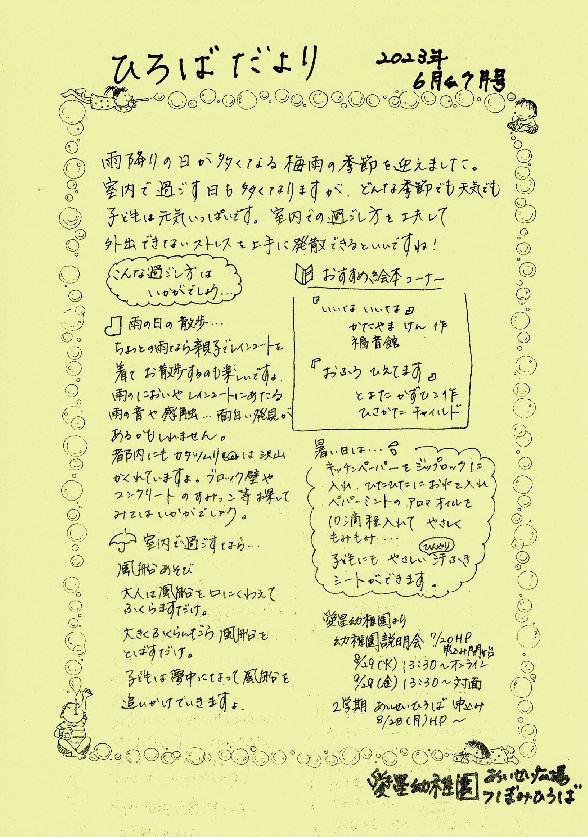 ひろばだより
2023年
6月&7月号
雨降りの日が多くなる梅雨の季節を迎えました。
室内で過ごす日も多くなりますが、どんな季節でも天気でも
子どもは元気いっぱいです。室内での過ごし方を工夫して
外出できないストレスを上手に発散できるといいですね!
こんな過ごし方は
いかがでしょう…
雨の日の散歩…
ちょっとの雨なら親子でレインコートを
着てお散歩するのも楽しいですよ。
雨のにおいやレインコートにあたる
雨の音や感触…面白い発見が
あるかもしれません。
都内にもカタツムリは沢山
かくれていますよ。ブロック壁や
コンクリートのすみっこ等お探して
みてはいかがでしょう。
室内で過ごすなら…
風船あそび
大人は風船を口にくわえて
ふくらますだけ。
大きくふくらんだら風船を
とばすだけ。
子どもは夢中になって風船を
追いかけていきますよ。
おすすめ絵本コーナー
『いいな いいな』
かたやま けん 作
福音館
『おふろ ひえてます』
とよた かずひこ 作
ひさかたチャイルド
暑い日は…
キッチンペーパーをジップロックに
入れ、ひたひたにお水を入れ
ペパーミントのアロマオイルを
10滴程入れて やさしく
もみもみ…
子どもにもやさしい ひんやり 汗ふき
シートができます。
愛星幼稚園より
幼稚園説明会 7/20HP
申込み開始
8/29(火)13:30〜オンライン
9/29(金)13:30〜対面
2学期 あいせいひろば 申込み
8/28(月)HP〜
愛星幼稚園 あいせい広場
つぼみひろば